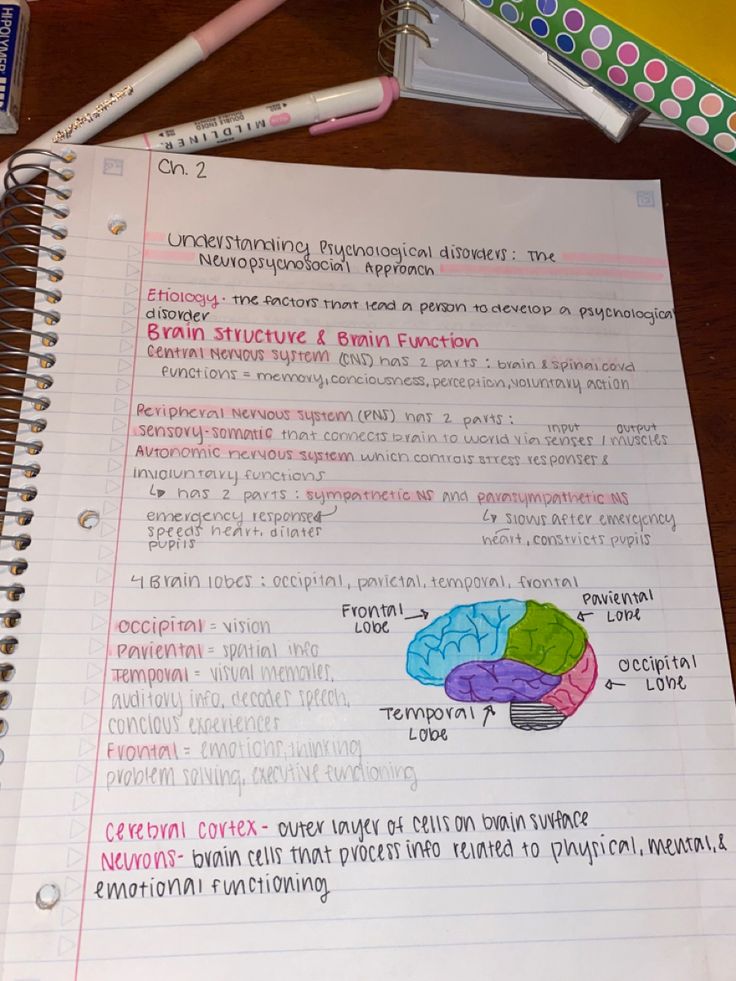 HIPOLYMER
MILDLINER
DOUBLE ENDED
Ch. 2
Understanding Psychological disorders: The
Neuropsychosocial Approach
Etiology- the factors that lead a person to develop a psychological
disorder
Brain structure & Brain Function
Central Nervous System (CNS) has 2 parts: brain & spinal cord
functions = memory, conciousness, perception, voluntary action
Peripheral Nervous System (PNS) has 2 parts:
input output
sensory-somatic that connects brain to world via senses / muscles
Autonomic nervous system which controls stress responses &
involuntary functions
↳ has 2 parts: sympathetic NS and parasympathetic NS
emergency response
speeds heart, dilates
pupils
↳ slows after emergency
heart, constricts pupils
4 Brain lobes: occipital, parietal, temporal, frontal
Occipital = vision
Pariental = spatial info
Temporal = visual memories,
auditory info, decodes speech,
concious experiences
Frontal = emotions, thinking
problem solving, executive functioning
Frontal
Lobe
Pariental
Lobe
Occipital
Lobe
Temporal
Lobe
cerebral cortex - outer layer of cells on brain surface
Neurons - brain cells that process info related to physical, mental, &
emotional functioning